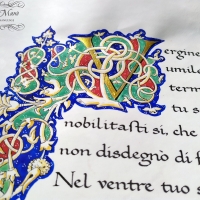 Vergine
umile
term
tu s
nobilitasti sì, che
non disdegnò di f
Nel ventre tuo s